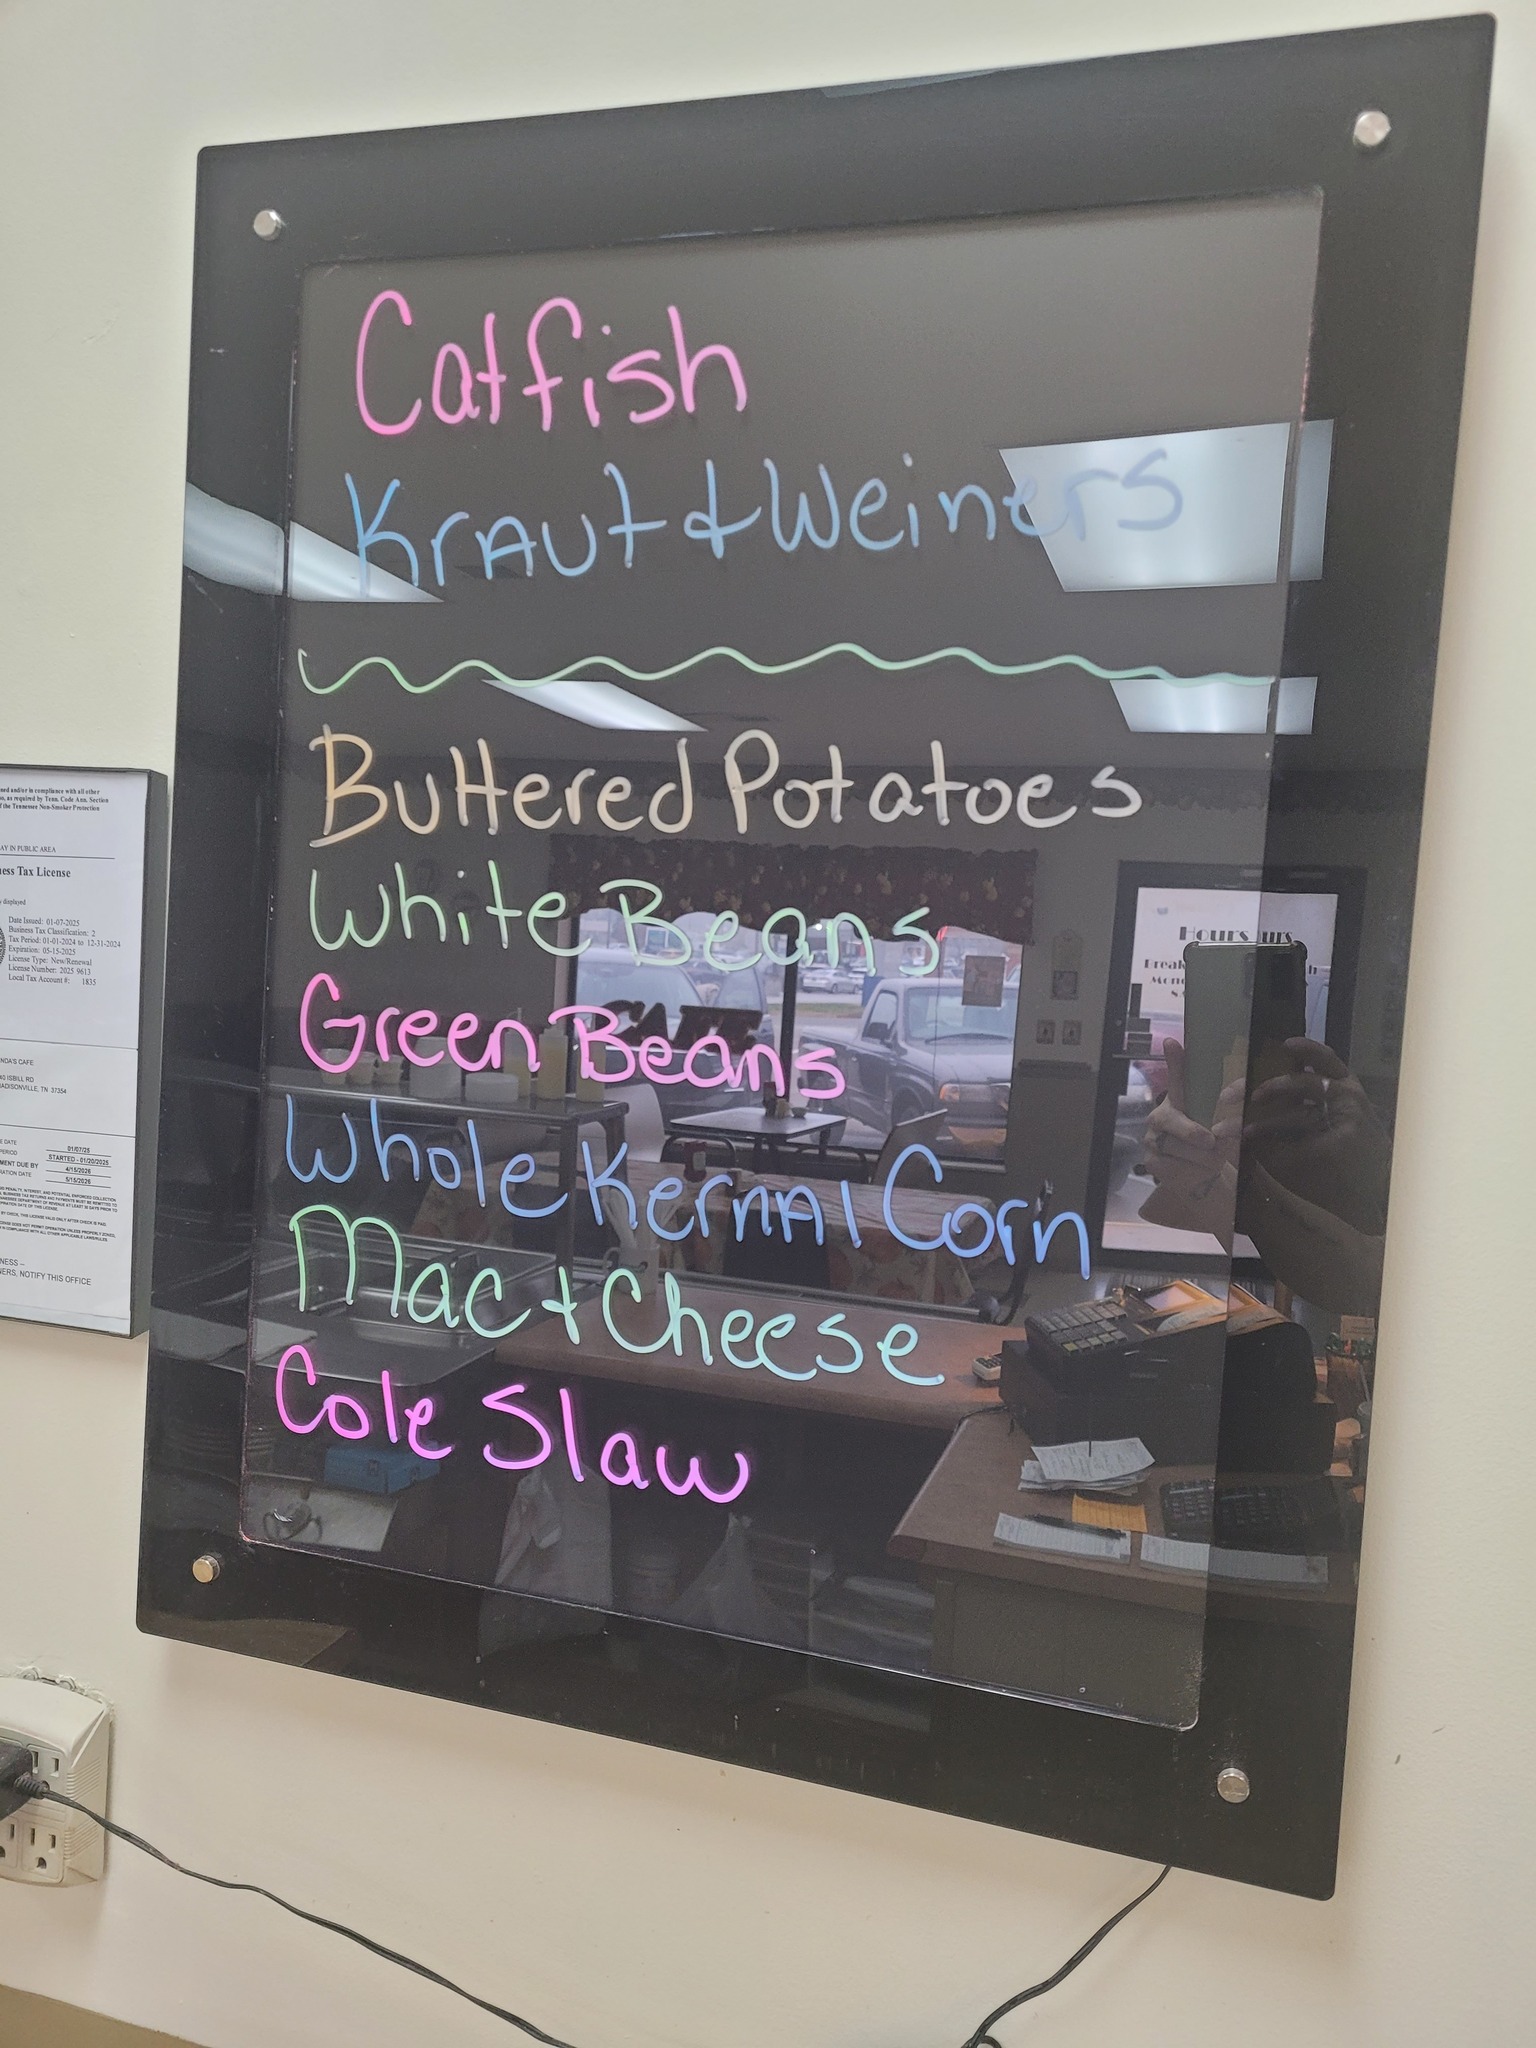 Catfish
Kraut & Weiners
Buttered Potatoes
White Beans
Green Beans
Whole Kernal Corn
Mac + Cheese
Cole Slaw
ned and/or in compliance with all other
as required by Tenn. Code Ann. Section
f the Tennessee Non-Smoker Protection
AY IN PUBLIC AREA
ess Tax License
displayed
Date Issued: 01-07-2025
Business Tax Classification: 2
Tax Period: 01-01-2024 to 12-31-2024
Expiration: 05-15-2025
License Type: New/Renewal
License Number: 2025 9613
Local Tax Account #: 1835
NDA'S CAFE
ISBILL RD
MADISONVILLE, TN 37354
DATE 01/07/25
PERIOD STARTED - 01/20/2025
MENT DUE BY 4/15/2026
RATION DATE 5/15/2026
NESS --
NERS, NOTIFY THIS OFFICE
CAFE
Hours